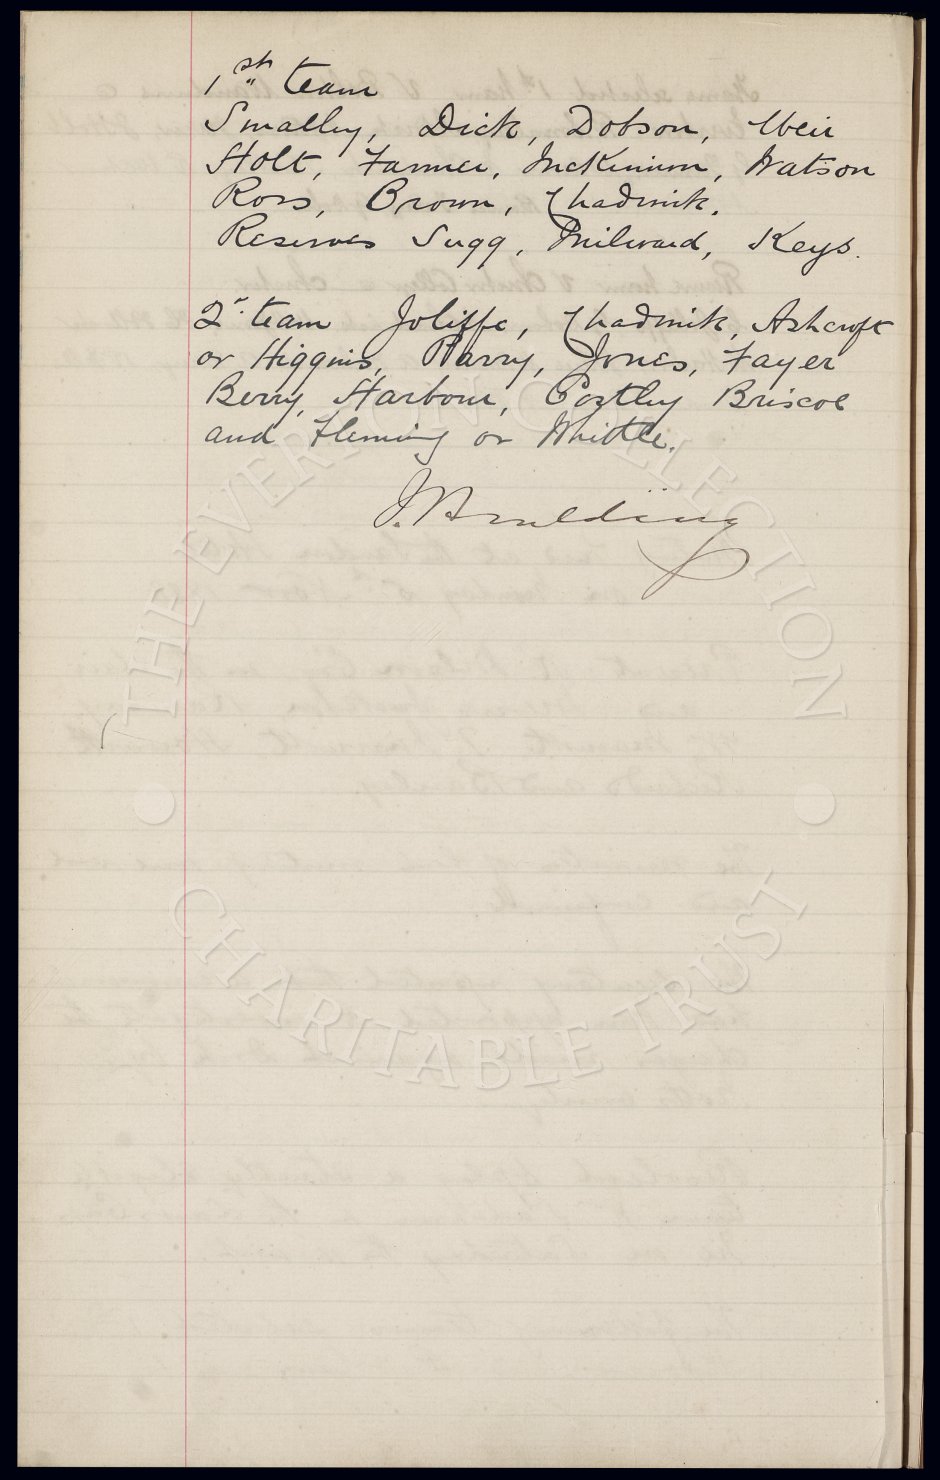 1st team
Smalley, Dick, Dobson, Weir
Holt, Farmer, McKinnon, Watson
Ross, Brown, Chadwick.
Reserves Sugg, Milward, Keys.
2r. team Joliffe, Chadwick, Ashcroft
or Higgins, Parry, Jones, Fayer
Berry, Harbour, Costley Briscoe
and Fleming or Whittle.
THE EVERTON COLLECTION
CHARITABLE TRUST